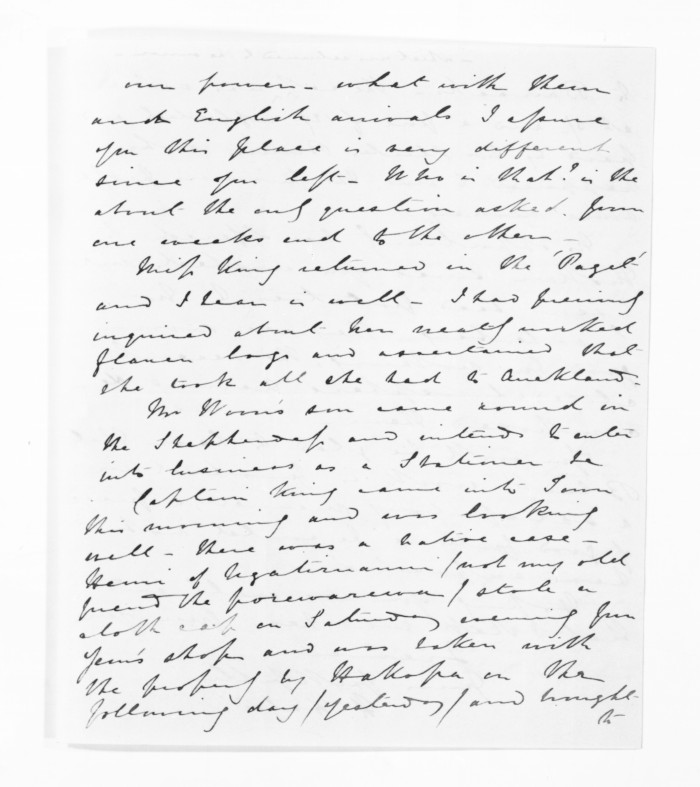 our power - what with them
and English arrivals I assure
you this place is very different
since you left - Who is that? is the
about the only question asked from
one weeks end to the other -
Miss King returned in the 'Paget'
and I hear is well - I had previously
inquired about her neatly worked
bags and ascertained that
she took all she had to Auckland -
Mr Woon's son came round in
the Shepherdess and intends to enter
into business as a Stationer &c
Captain King came into Town
this morning and was looking
well - there was a native case -
Hemi of Ngatiruanui /not my old
friend the porewarewa/ stole a
cloth cap on Saturday evening from
shop and was taken with
the property by Hakopa on the
following day /yesterday/ and brought
to